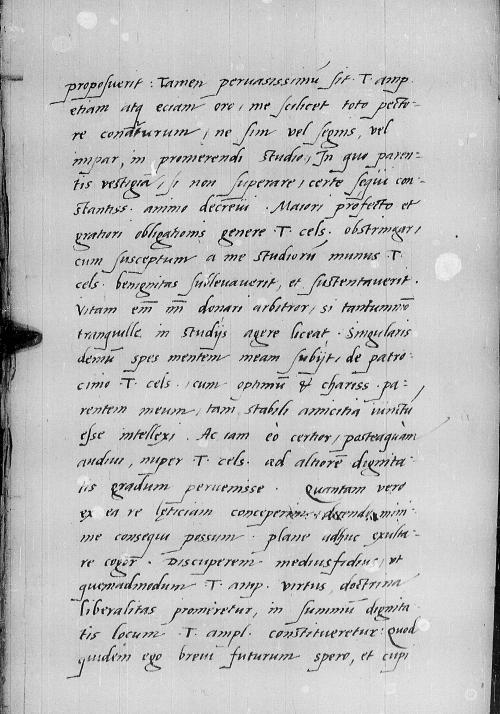 proposuerit : Tamen peruasissimū sit T. amp.
etiam atq eciam oro, me scilicet toto pecto-
re conaturum, ne sim vel segnis, vel
impar, in promerendi studio, In quo paren-
tis vestigia, si non superare, certe sequi con-
stantiss. animo decreui. Maiori profecto et
gratiori obligationis genere T. cels. obstringar,
cum susceptum a me studiorū munus T.
cels. benignitas subleuauerit, et sustentauerit.
Vitam em̄ m̄ donari arbitror, si tantummō
tranquille in studijs agere liceat. Singularis
demū spes mentem meam subijt, de patro-
cinio T. cels. , cum optimū & chariss. pa-
rentem meum, tam stabili amicitia iunctū
esse intellexi. Ac iam eò certior, posteaquàm
audiui, nuper T. cels. ad altiorē dignita-
tis gradum peruenisse. Quantam vero
ex ea re lętitiam conceperim, mini-
me consequi possum. plane adhuc exulta-
re cogor. Discuperem mediusfidius, vt
quemadmodum T. amp. virtus, doctrina
liberalitas promeretur, in summū dignita-
tis locum T. ampl. constitueretur: Quod
quidem ego breui futurum spero, et cupi